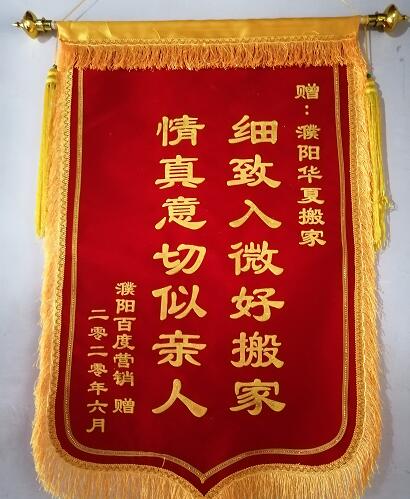 赠：濮阳华夏搬家
细致入微好搬家
情真意切似亲人
濮阳百度营销 赠
二零二零年六月